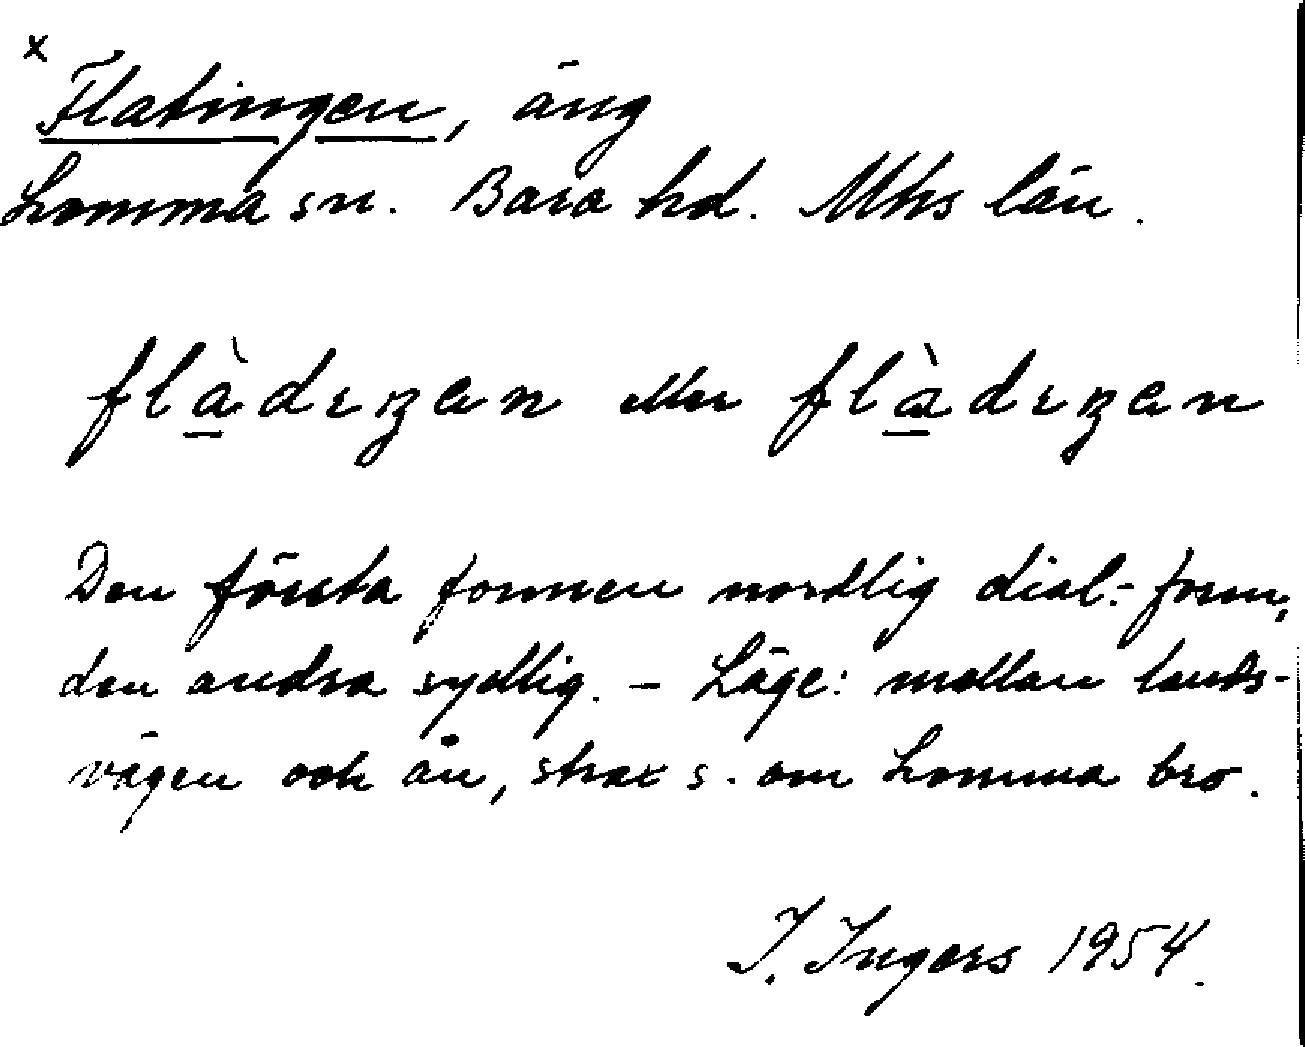 x
Flatingen, äng
Lomma sn. Bara hd. Mhs län.
flàdıŋen eller flàdıŋen
Den första formen nordlig dial.-form,
den andra sydlig. – Läge: mellan lands-
vägen och ån, strax s. om Lomma bro.
I. Ingers 1954.